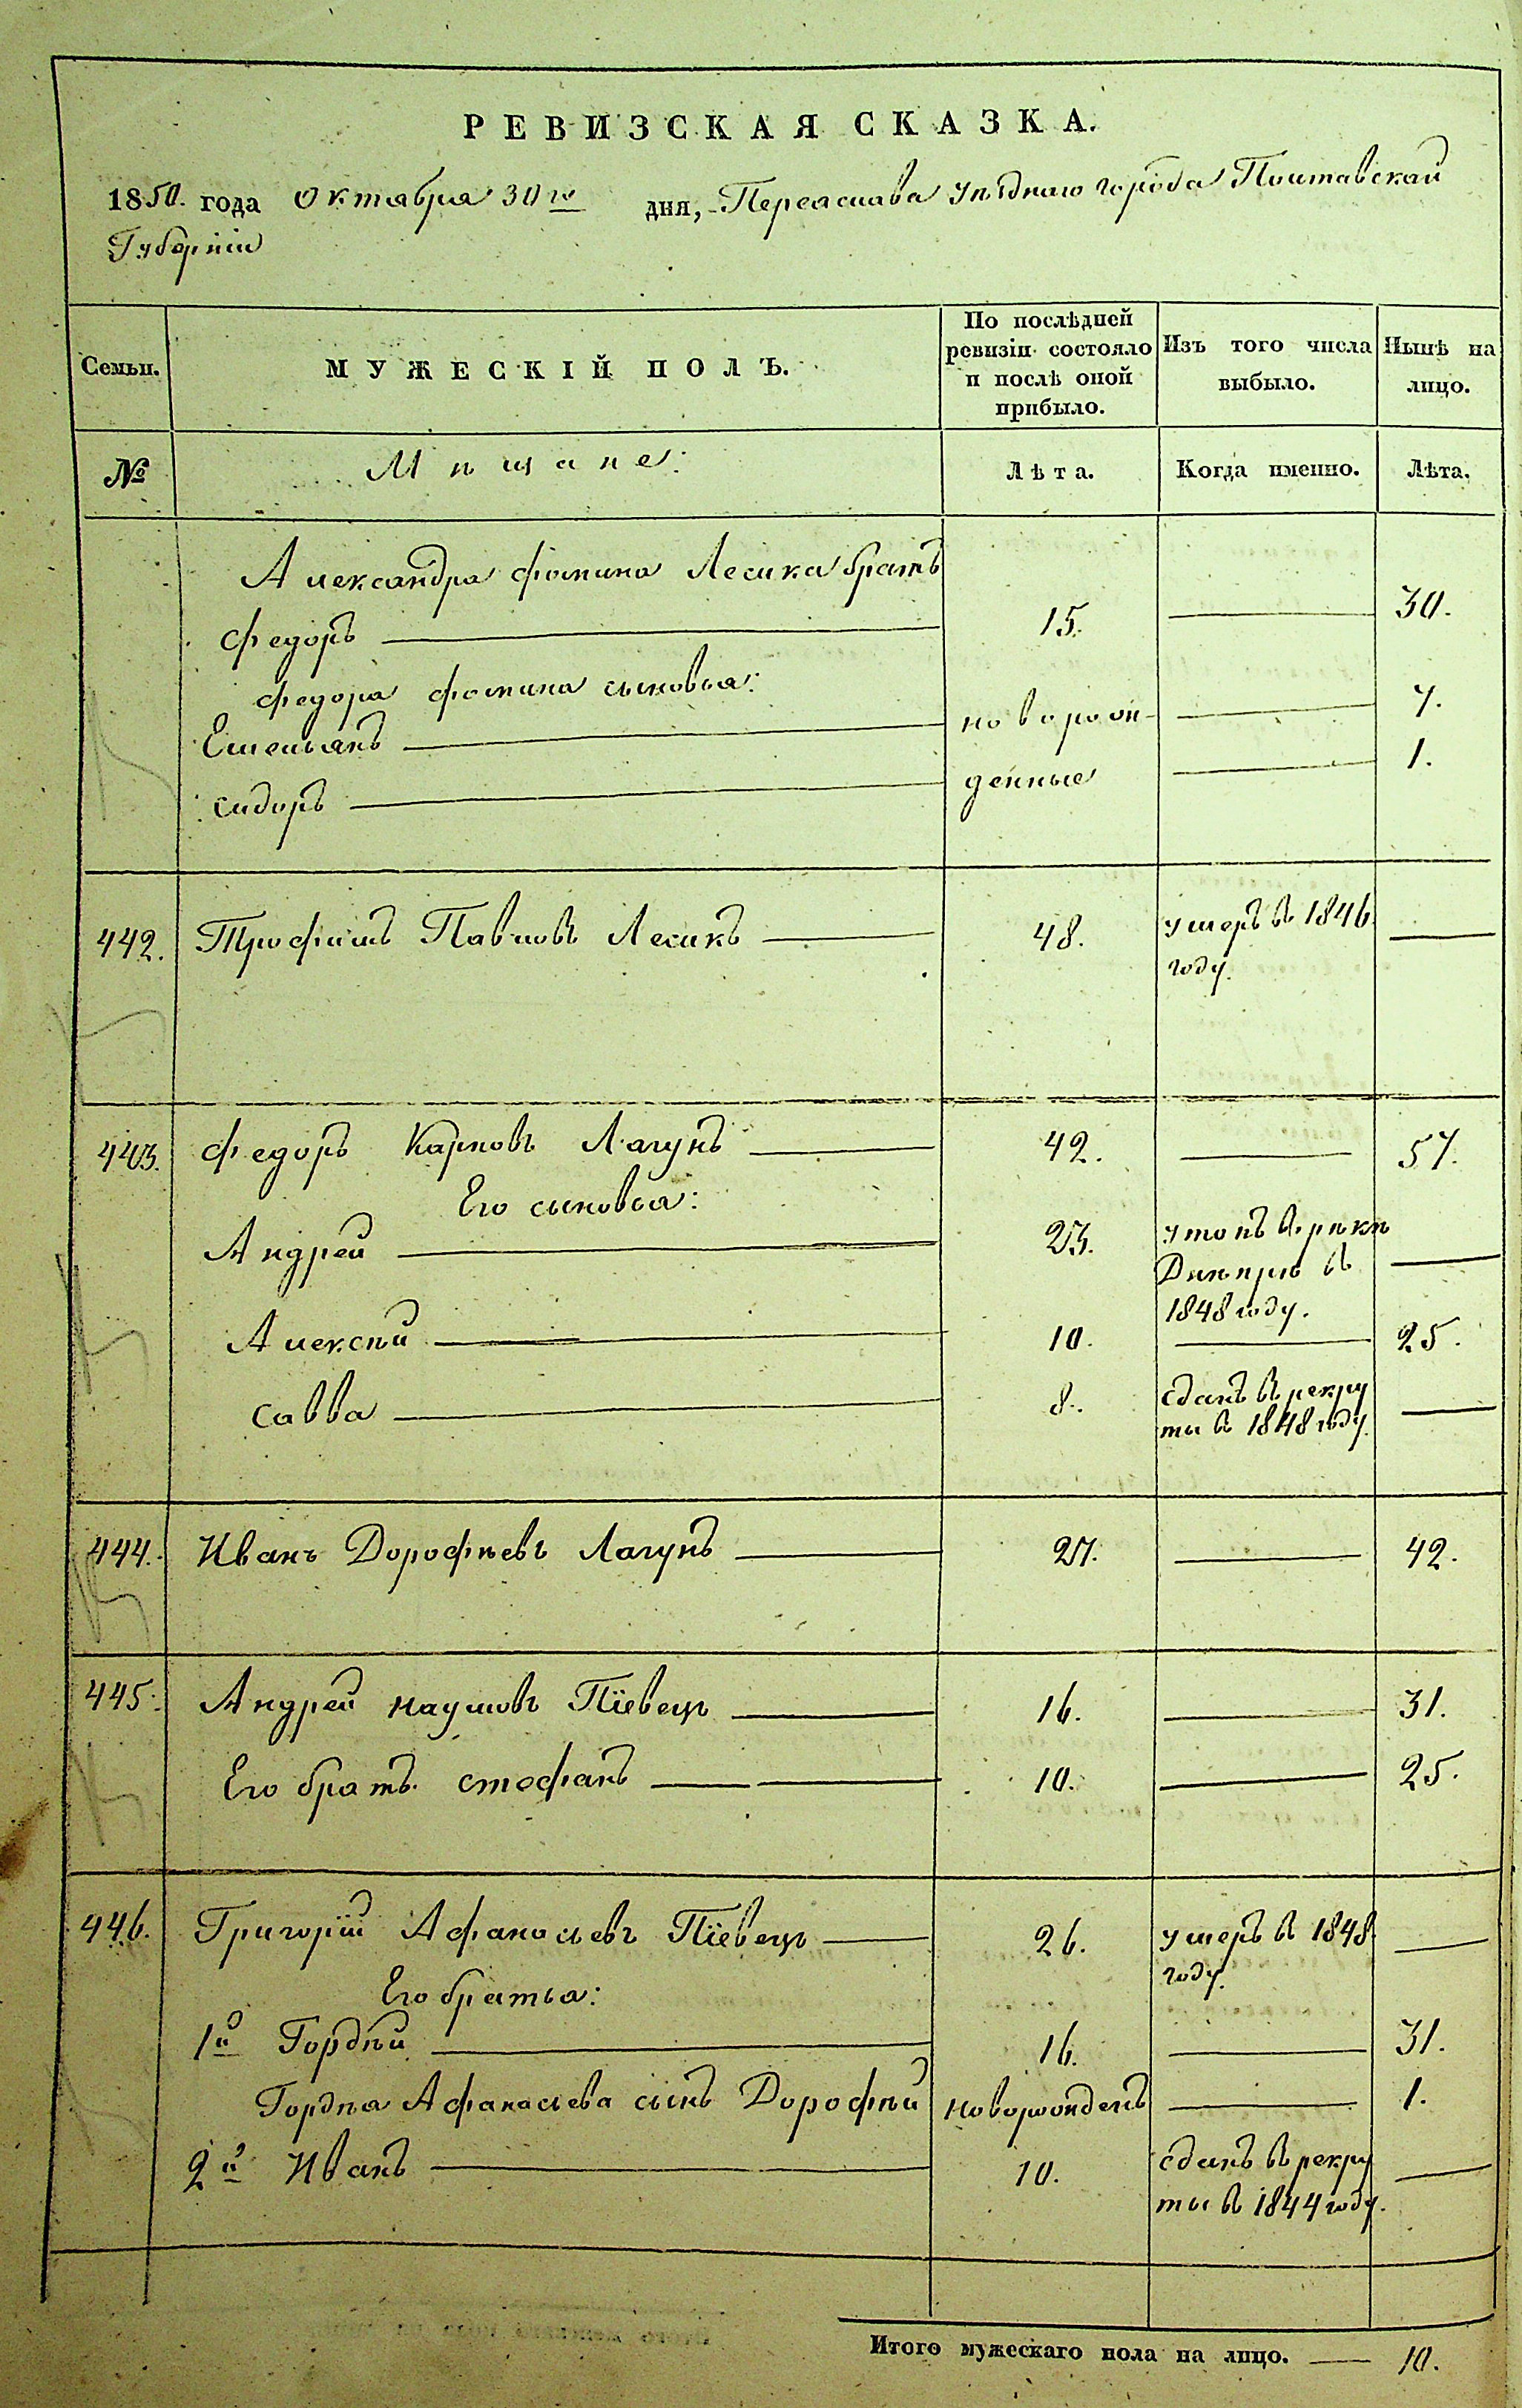 РЕВИЗСКАЯ СКАЗКА.
1850. года Октября 30го дня, Переяслава уѣзднаго города Полтавской
Губерніи
Семьи. МУЖЕСКІЙ ПОЛЪ. По послѣдней ревизіи состояло и послѣ оной прибыло. Изъ того числа выбыло. Нынѣ на лицо.
№ Мѣщане: Лѣта. Когда именно. Лѣта.
Александра Фомина Лесика братъ
Федоръ — 15. — 30.
Федора Фомина сыновья:
Емельянъ — новорож- — 7.
Сидоръ — денные — 1.
442. Трофимъ Павловъ Лесикъ — 48. умеръ въ 1846 —
году.
443. Федоръ Карповъ Лагунъ — 42. — 57.
Его сыновья:
Андрей — 23. утопъ въ рѣкѣ —
Днепрѣ въ
1848 году.
Алексѣй — 10. — 25.
Савва — 8. сданъ въ рекру —
ты въ 1848 году.
444. Иванъ Дорофѣевъ Лагунъ — 27. — 42.
445. Андрей Наумовъ Пїевецъ — 16. — 31.
Его братъ Стефанъ — 10. — 25.
446. Григорій Афанасьевъ Пїевецъ — 26. умеръ въ 1848 —
году.
Его братья:
1й Гордѣй — 16. — 31.
Гордѣя Афанасьева сынъ Дорофѣй новорожденъ — 1.
2й Иванъ — 10. сданъ въ рекру —
ты въ 1844 году.
Итого мужескаго пола на лицо. — 10.